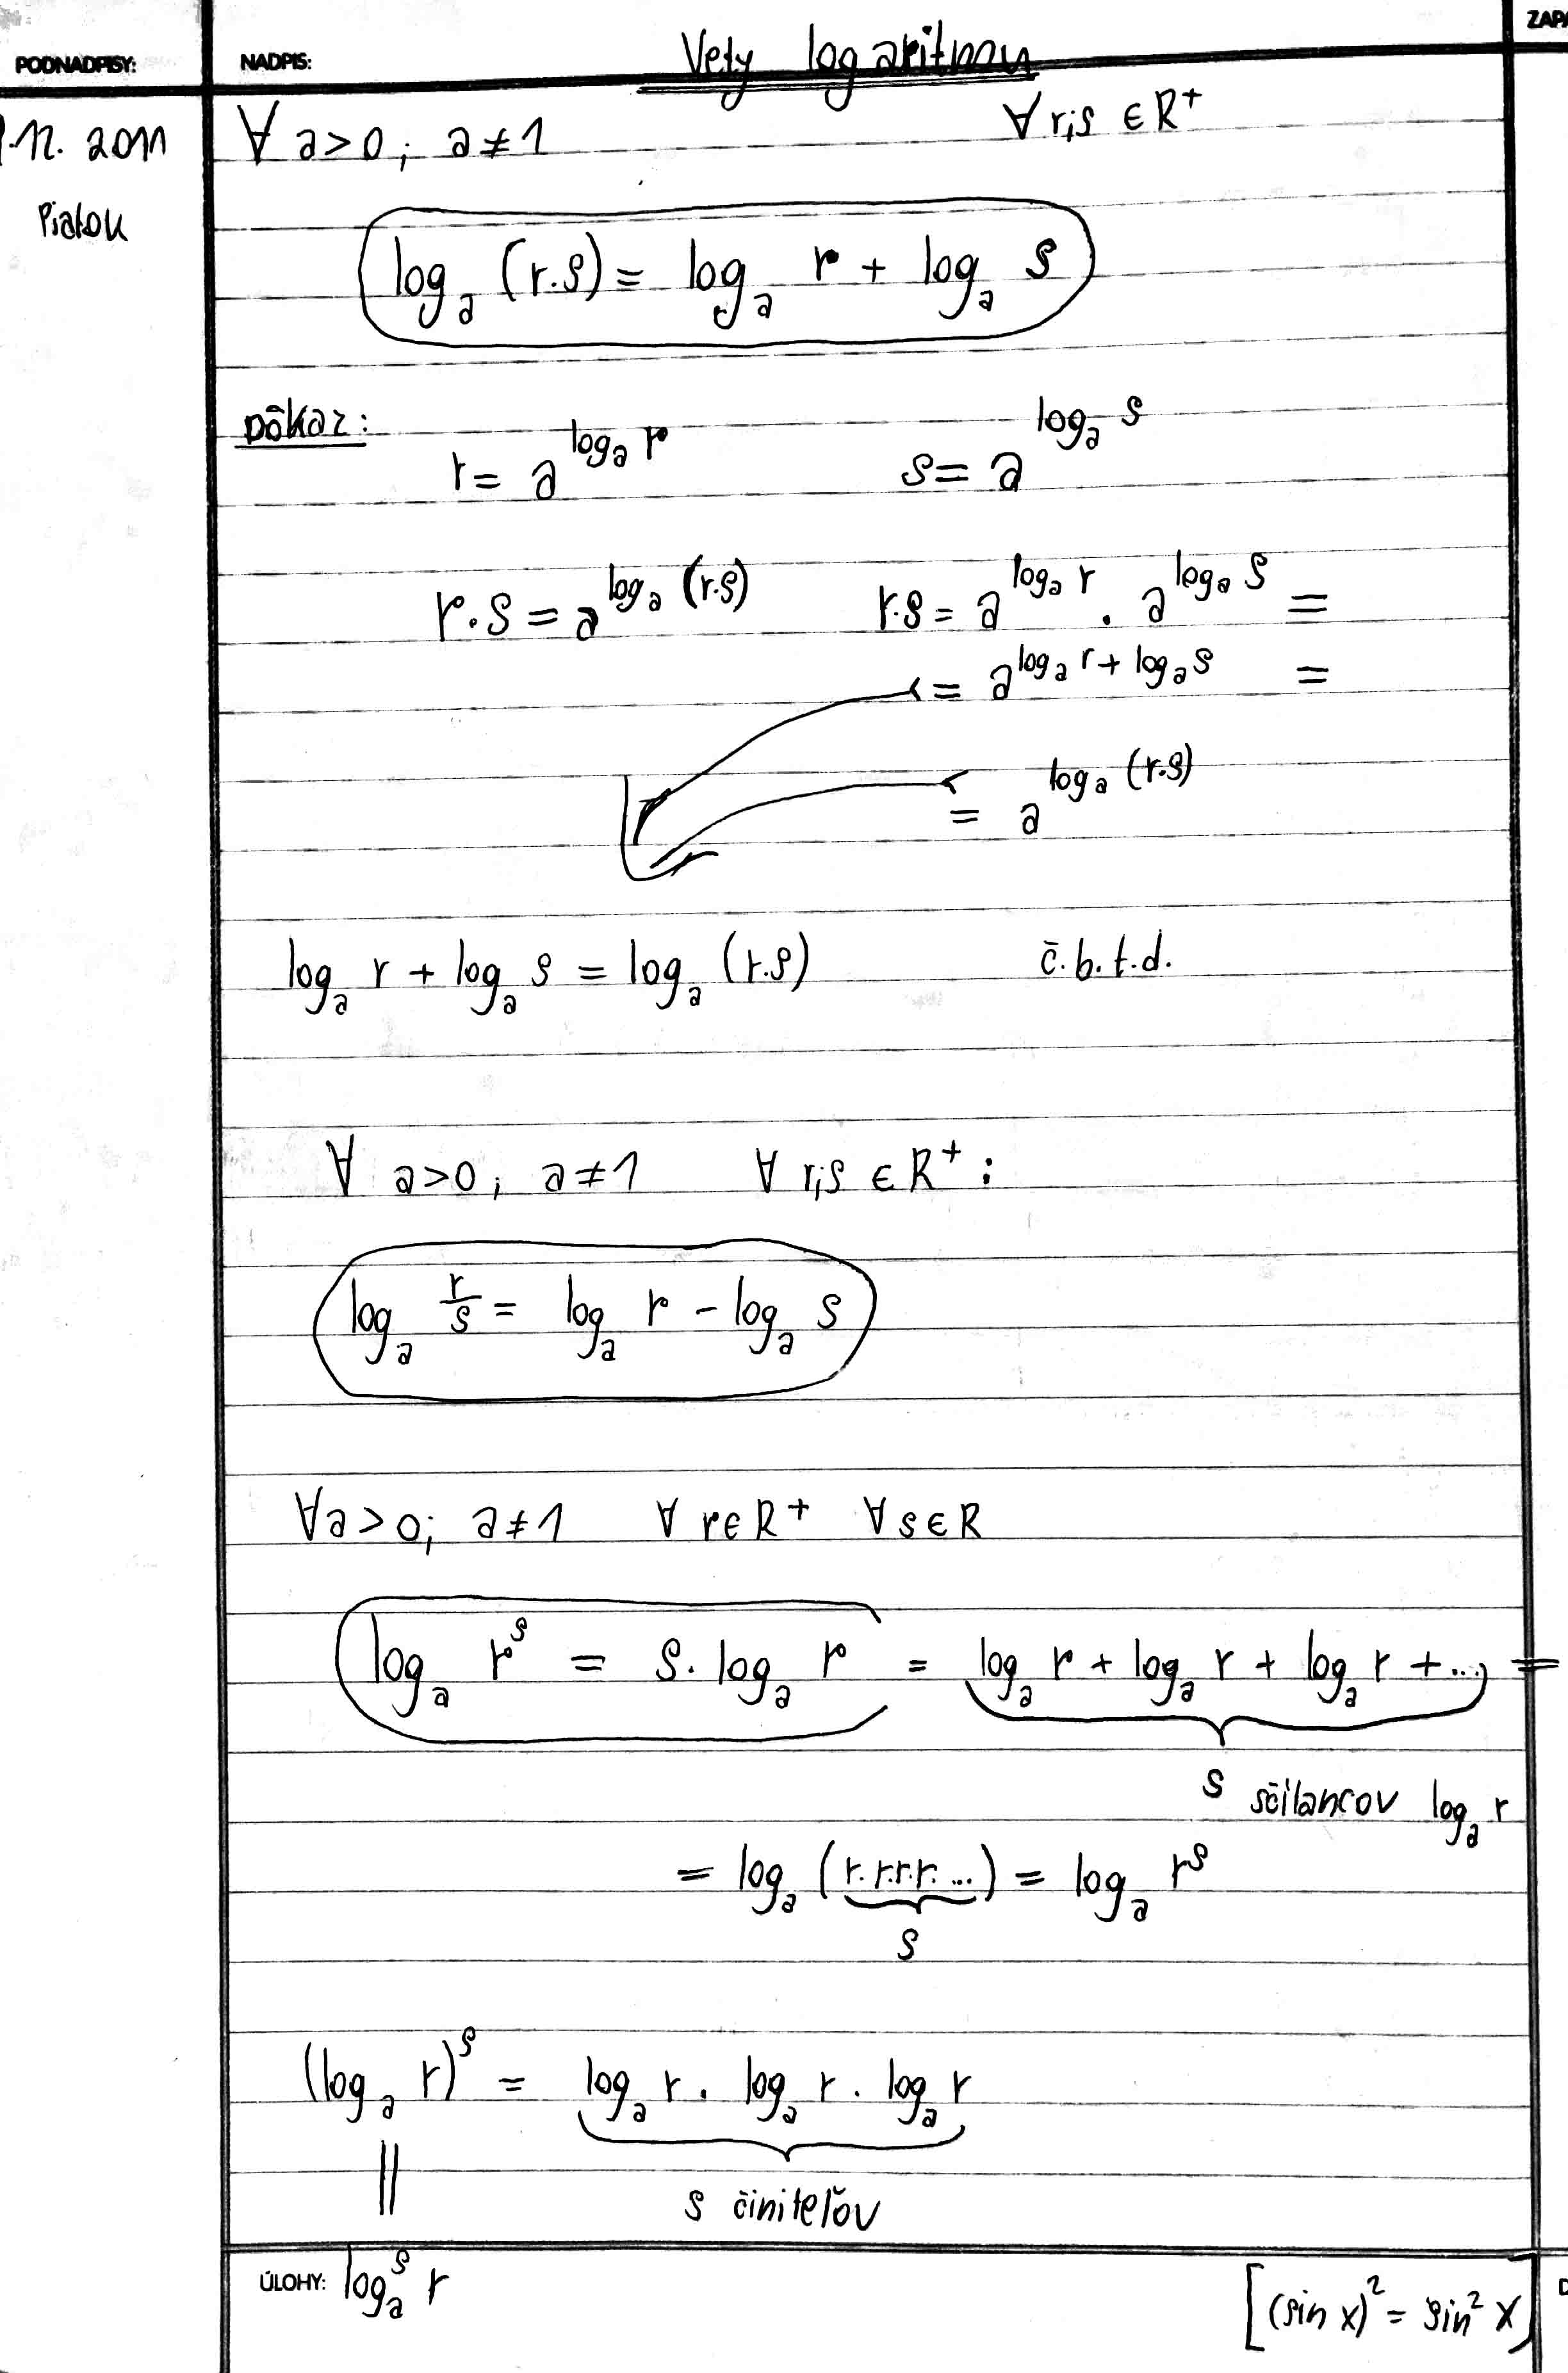 PODNADPISY:
NADPIS:
Vety logaritmov
.12. 2011
Piatok
∀ a>0; a≠1 ∀ r;s ∈ R⁺
logₐ (r.s) = logₐ r + logₐ s
Dôkaz:
r = a^(logₐ r) s = a^(logₐ s)
r.s = a^(logₐ (r.s)) r.s = a^(logₐ r) . a^(logₐ s) =
= a^(logₐ r + logₐ s) =
= a^(logₐ (r.s))
logₐ r + logₐ s = logₐ (r.s) č.b.t.d.
∀ a>0; a≠1 ∀ r;s ∈ R⁺ :
logₐ r/s = logₐ r - logₐ s
∀a>0; a≠1 ∀ r∈R⁺ ∀s∈R
logₐ r^s = s. logₐ r = logₐ r + logₐ r + logₐ r + ... =
s sčítancov logₐ r
= logₐ (r.r.r.r. ...) = logₐ r^s
s
(logₐ r)^s = logₐ r . logₐ r . logₐ r
||
s činiteľov
ÚLOHY: logₐ^s r
[(sin x)² = sin² x]